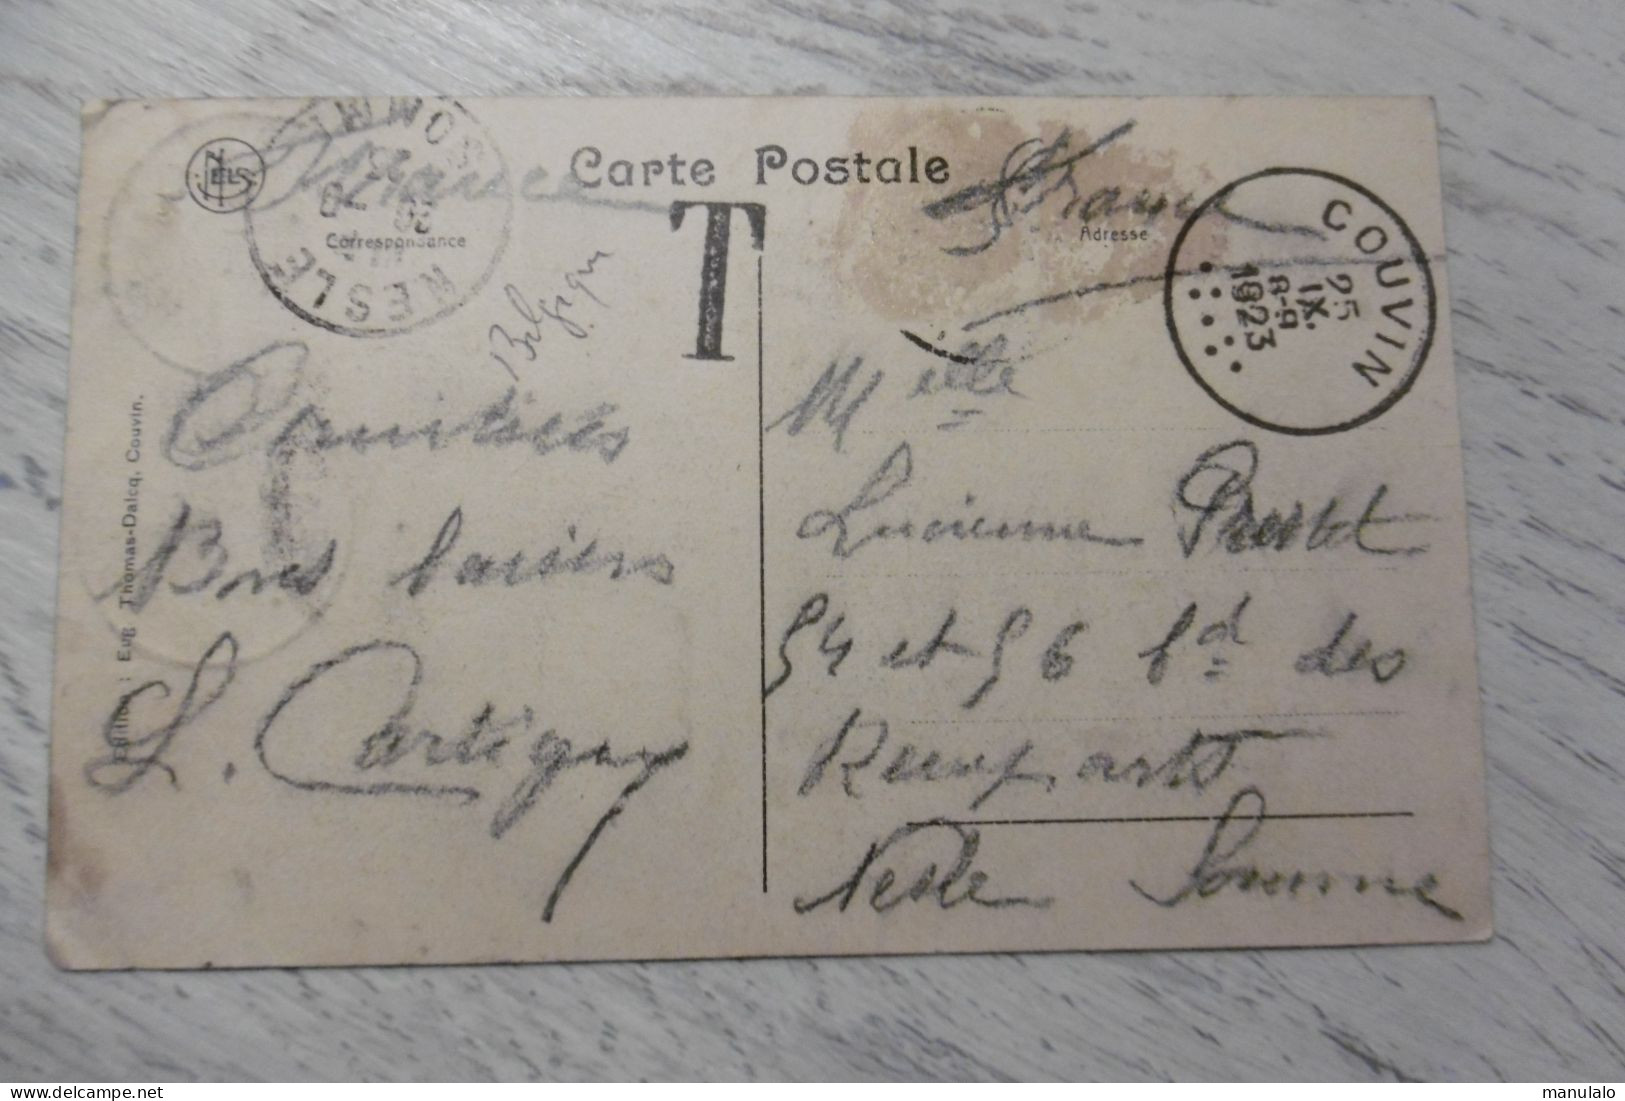 NELS
France
Carte Postale
France
Correspondance
Adresse
NESLE
SOMME
T
Belgique
COUVIN
25
IX.
8-9
1923
Edition : Eug Thomas-Dalcq, Couvin.
Amitiés
Bons baisers
L. Cartigny
Melle
Lucienne
54 et 56 bd des
Remparts
Nesle Somme
delcampe.net
manulalo